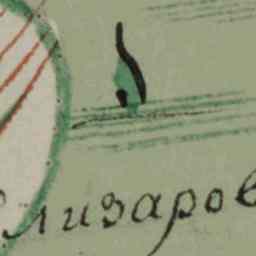 лизаров